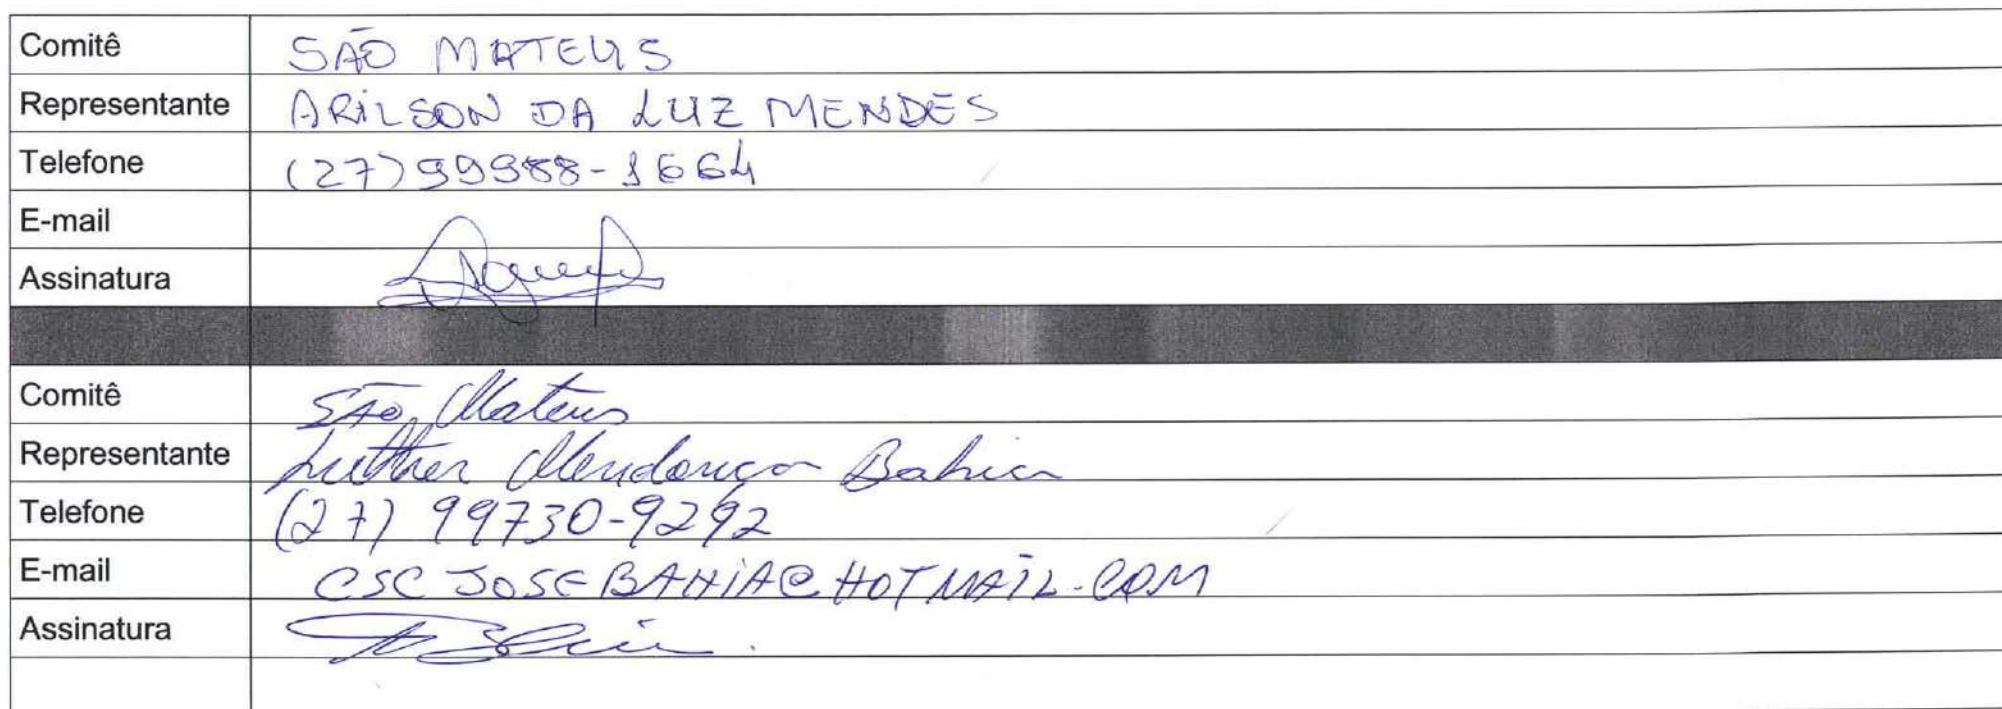 Comitê SÃO MATEUS
Representante ARILSON DA LUZ MENDES
Telefone (27)99988-1664
E-mail
Assinatura
Comitê São Mateus
Representante Luther Mendonça Bahia
Telefone (27) 99730-9292
E-mail CSCJOSEBAHIA@HOTMAIL.COM
Assinatura